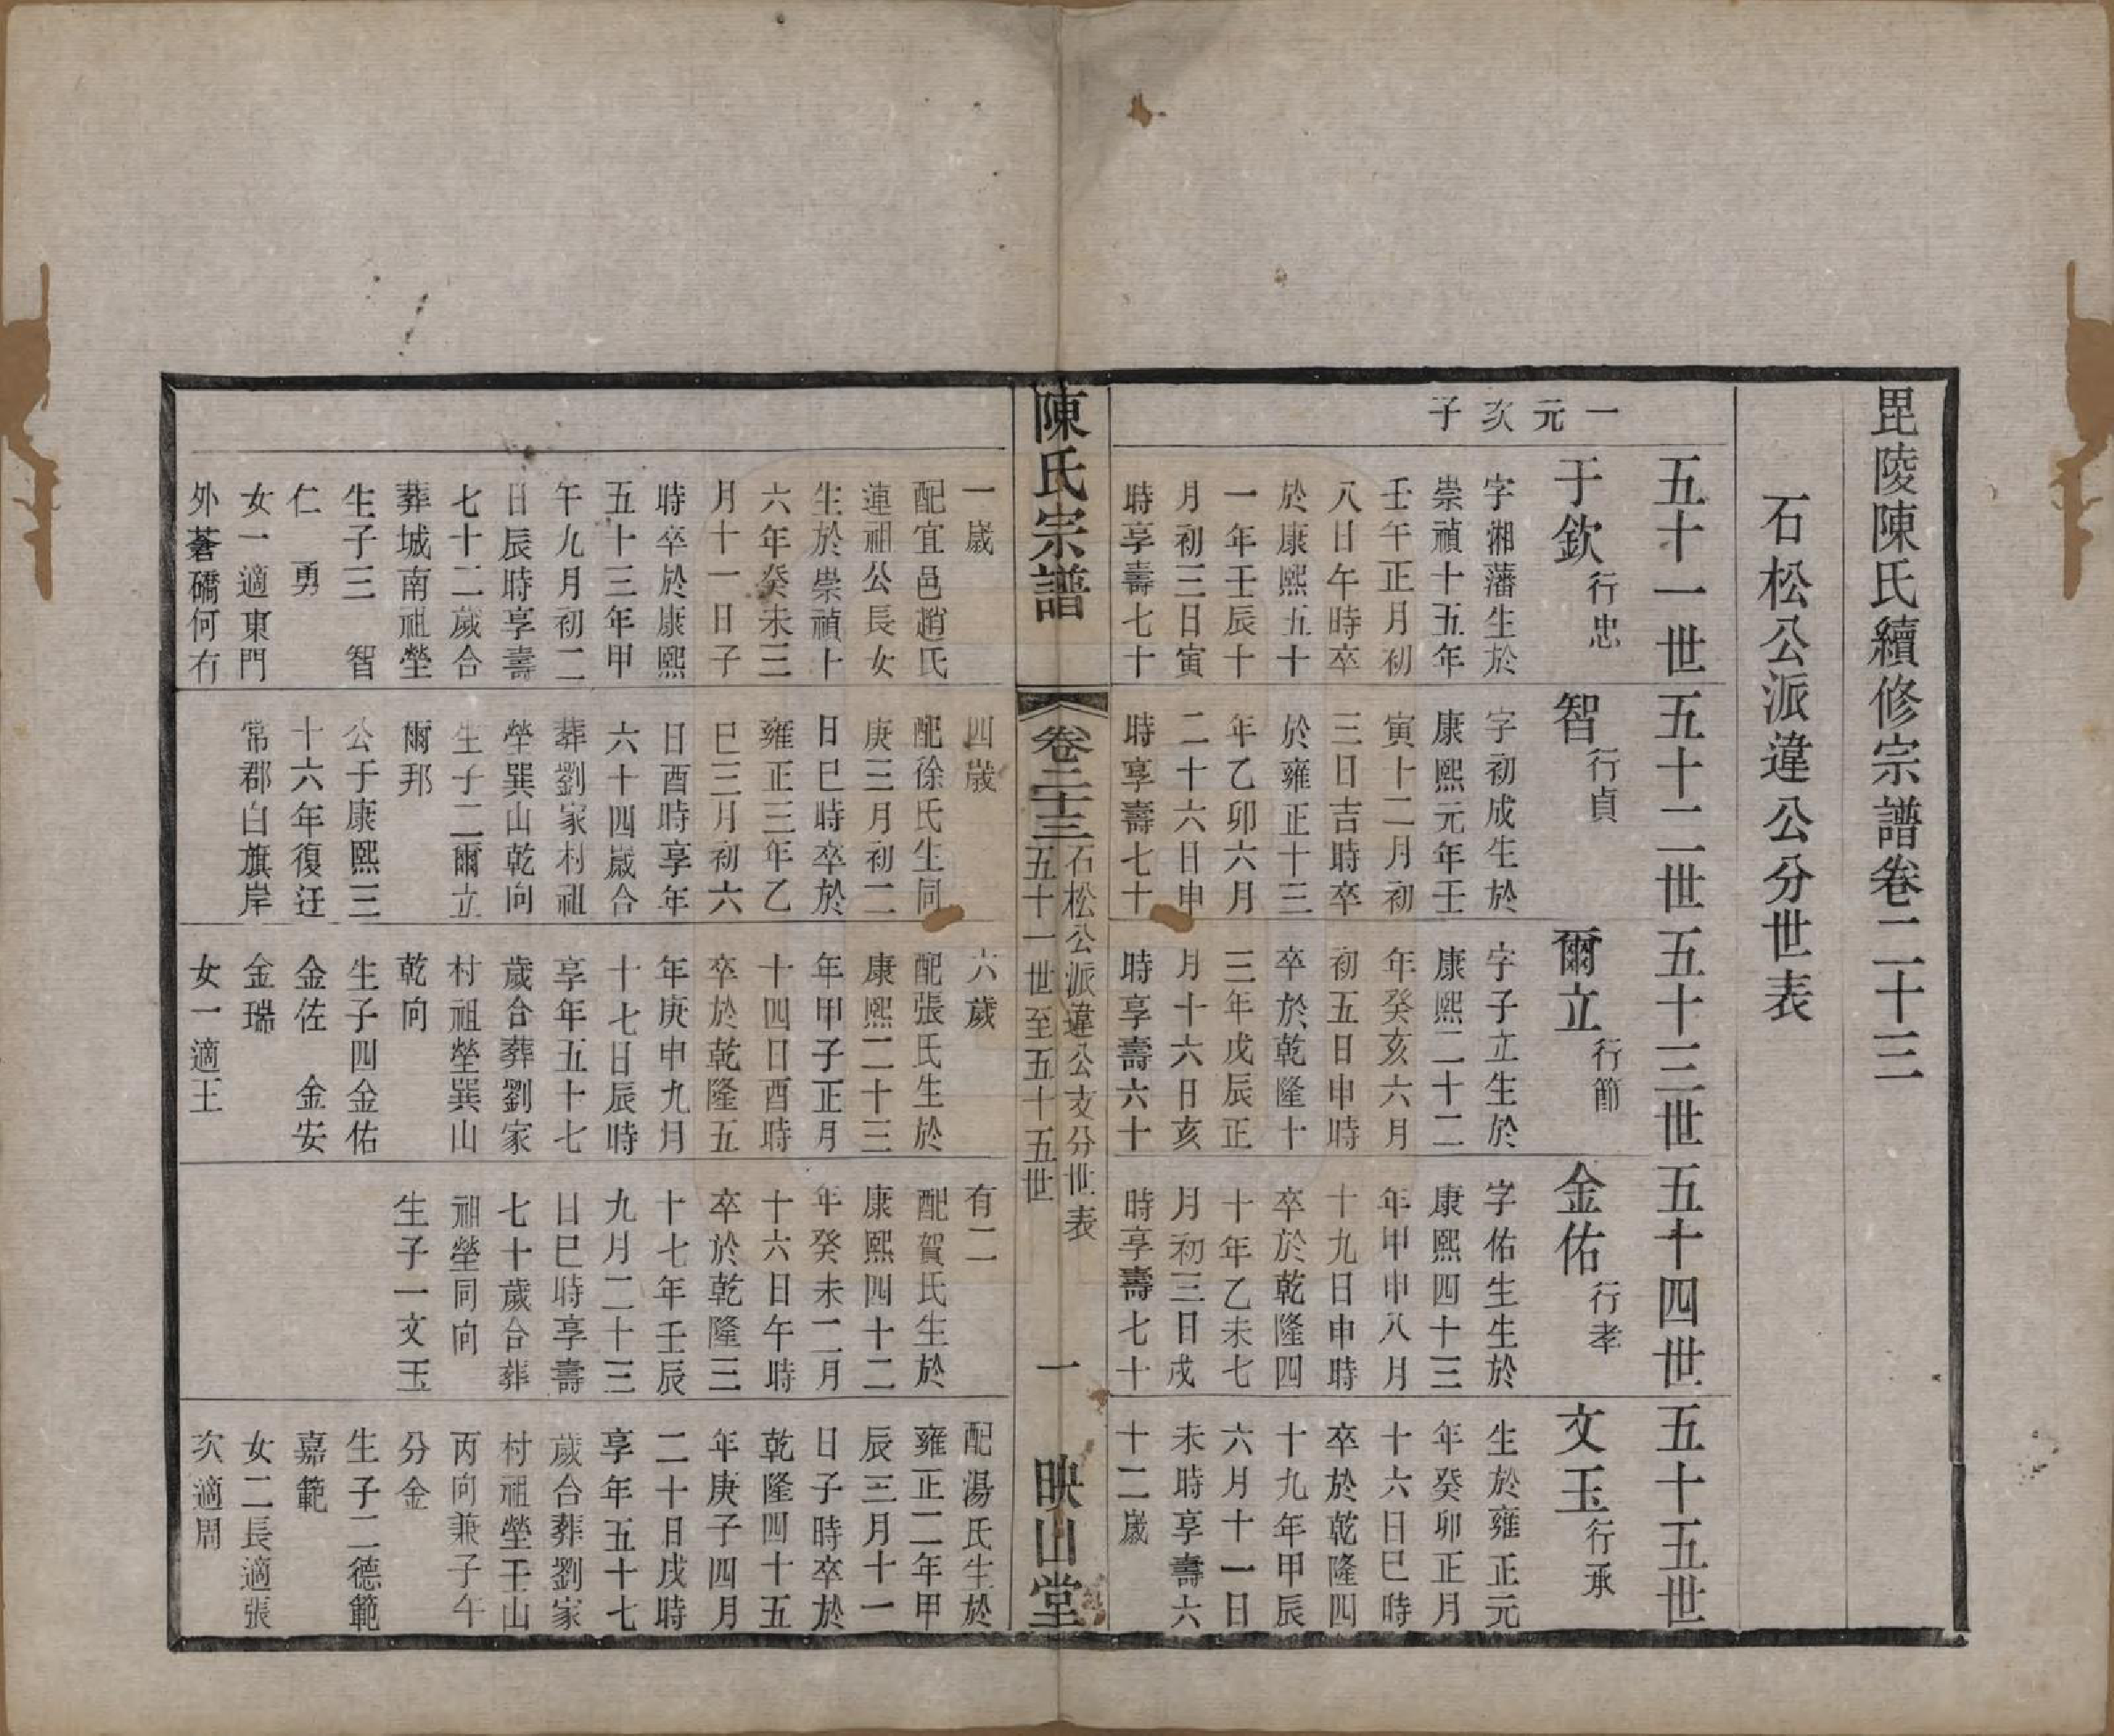 毘陵陳氏續修宗譜卷二十三
石松公派違公分世表
五十一世
五十二世
五十三世
五十四世
五十五世
一元次子
于欽行忠
字湘藩生於
崇禎十五年
壬午正月初
八日午時卒
於康熙五十
一年壬辰十
月初三日寅
時享壽七十
智行貞
字初成生於
康熙元年壬
寅十二月初
三日吉時卒
於雍正十三
年乙卯六月
二十六日申
時享壽七十
爾立行節
字子立生於
康熙二十二
年癸亥六月
初五日申時
卒於乾隆十
三年戊辰正
月十六日亥
時享壽六十
金佑行孝
字佑生生於
康熙四十三
年甲申八月
十九日申時
卒於乾隆四
十年乙未七
月初三日戌
時享壽七十
文玉行承
生於雍正元
年癸卯正月
十六日巳時
卒於乾隆四
十九年甲辰
六月十一日
未時享壽六
十二歲
陳氏宗譜
卷二十三
石松公派違公支分世表
五十一世至五十五世
一
映山堂
一歲
配宜邑趙氏
連祖公長女
生於崇禎十
六年癸未三
月十一日子
時卒於康熙
五十三年甲
午九月初二
日辰時享壽
七十二歲合
葬城南祖塋
生子三 智
仁 勇
女一適東門
外蒼礄何冇
四歲
配徐氏生同
庚三月初二
日巳時卒於
雍正三年乙
巳三月初六
日酉時享年
六十四歲合
葬劉家村祖
塋巽山乾向
生子二爾立
爾邦
公于康熙三
十六年復迁
常郡白旗岸
六歲
配張氏生於
康熙二十三
年甲子正月
十四日酉時
卒於乾隆五
年庚申九月
十七日辰時
享年五十七
歲合葬劉家
村祖塋巽山
乾向
生子四金佑
金佐 金安
金瑞
女一適王
有二
配賀氏生於
康熙四十二
年癸未二月
十六日午時
卒於乾隆三
十七年壬辰
九月二十三
日巳時享壽
七十歲合葬
祖塋同向
生子一文玉
配湯氏生於
雍正二年甲
辰三月十一
日子時卒於
乾隆四十五
年庚子四月
二十日戌時
享年五十七
歲合葬劉家
村祖塋壬山
丙向兼子午
分金
生子二德範
嘉範
女二長適張
次適周